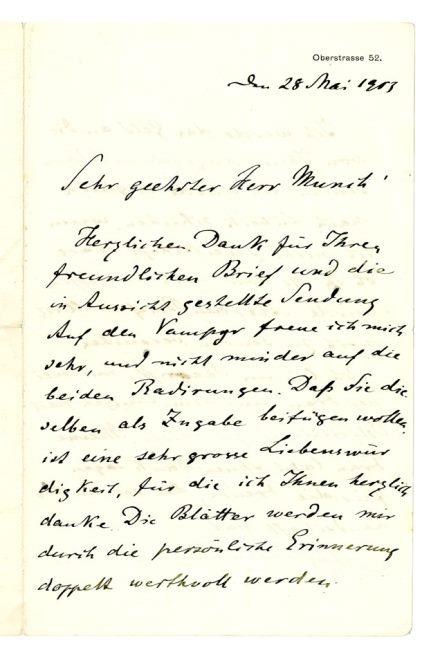 Oberstrasse 52.
den 28 Mai 1903
Sehr geehrter Herr Munch!
Herzlichen Dank für Ihren
freundlichen Brief und die
in Aussicht gestellte Sendung
Auf den Vampyr freue ich mich
sehr, und nicht minder auf die
beiden Radirungen. Daß Sie die
selben als Zugabe beifügen wollen,
ist eine sehr grosse Liebenswür
digkeit, für die ich Ihnen herzlich
danke. Die Blätter werden mir
durch die persönliche Erinnerung
doppelt werthvoll werden.